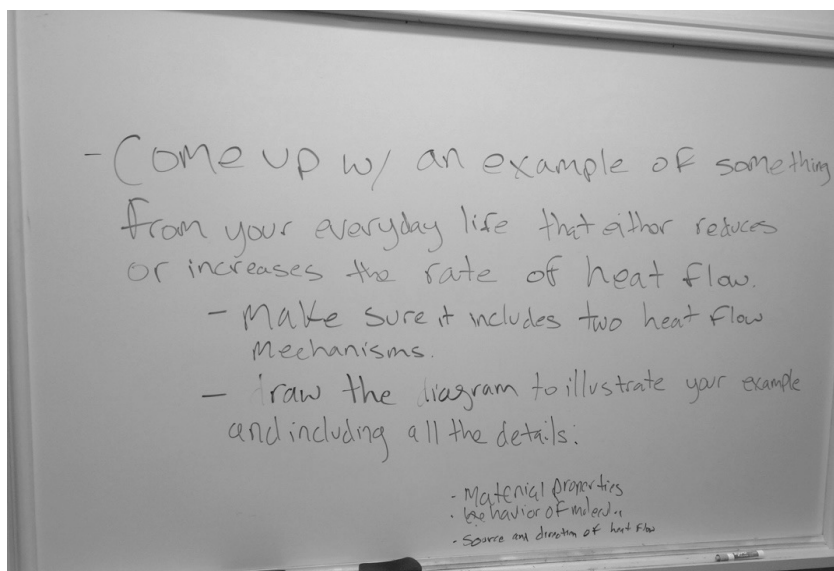 - Come up w/ an example of something
from your everyday life that either reduces
or increases the rate of heat flow.
- Make sure it includes two heat flow
Mechanisms.
- draw the diagram to illustrate your example
and including all the details:
- Material properties
- behavior of molecules
- Source and direction of heat flow